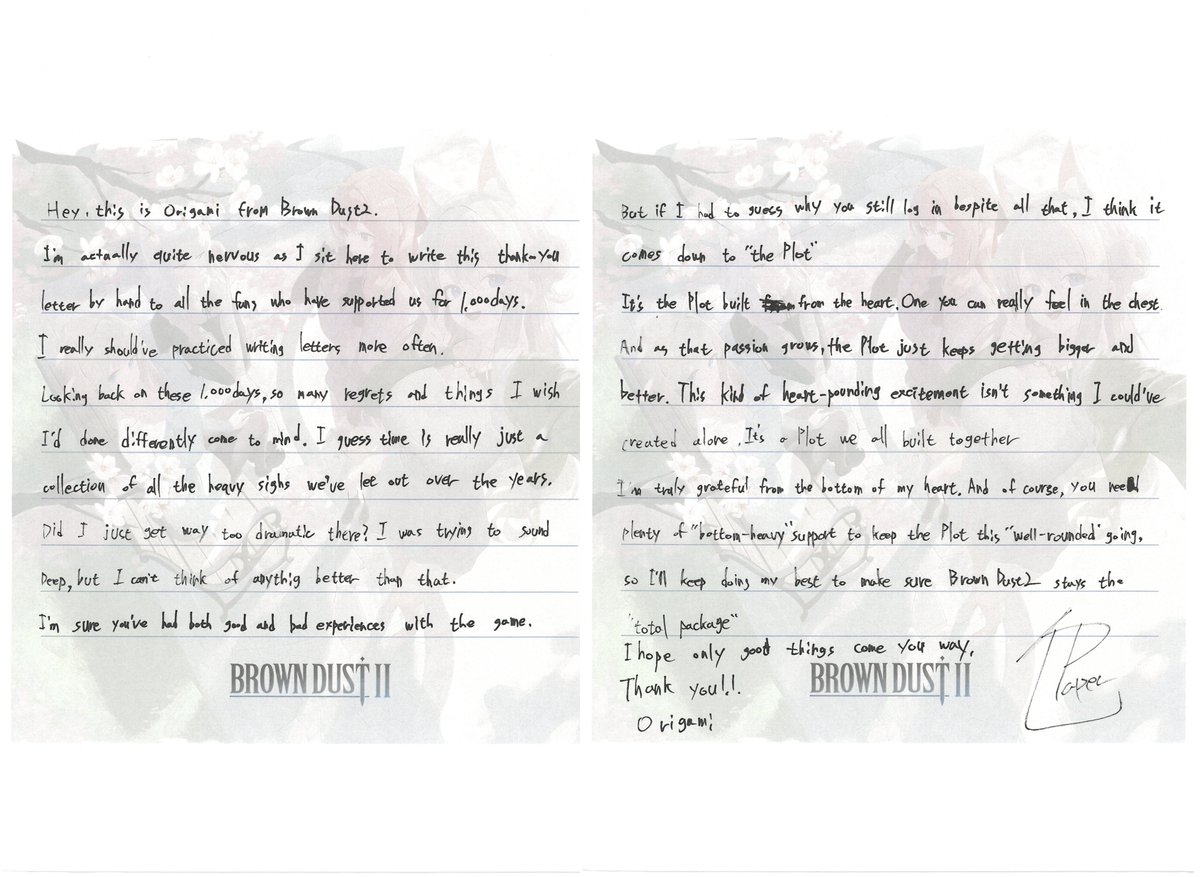 Hey, this is Origami from Brown Dust2.
I'm actually quite nervous as I sit here to write this thank-you
letter by hand to all the fans who have supported us for 1,000days.
I really should've practiced writing letters more often.
Looking back on these 1,000days, so many regrets and things I wish
I'd done differently come to mind. I guess time is really just a
collection of all the heavy sighs we've let out over the years.
Did I just get way too dramatic there? I was trying to sound
Deep, but I can't think of anythig better than that.
I'm sure you've had both good and bad experiences with the game.
BROWN DUST II
But if I had to guess why you still log in bespite all that, I think it
comes down to "the Plot"
It's the Plot built from the heart. One you can really feel in the chest.
And as that passion grows, the Plot just keeps getting bigger and
better. This kind of heart-pounding excitement isn't something I could've
created alone. It's a Plot we all built together
I'm truly grateful from the bottom of my heart. And of course, you need
plenty of "bottom-heavy" support to keep the Plot this "well-rounded" going,
so I'll keep doing my best to make sure Brown Dust2 stays the
"total package"
I hope only good things come you way.
Thank you!!
Origami
BROWN DUST II
Paper